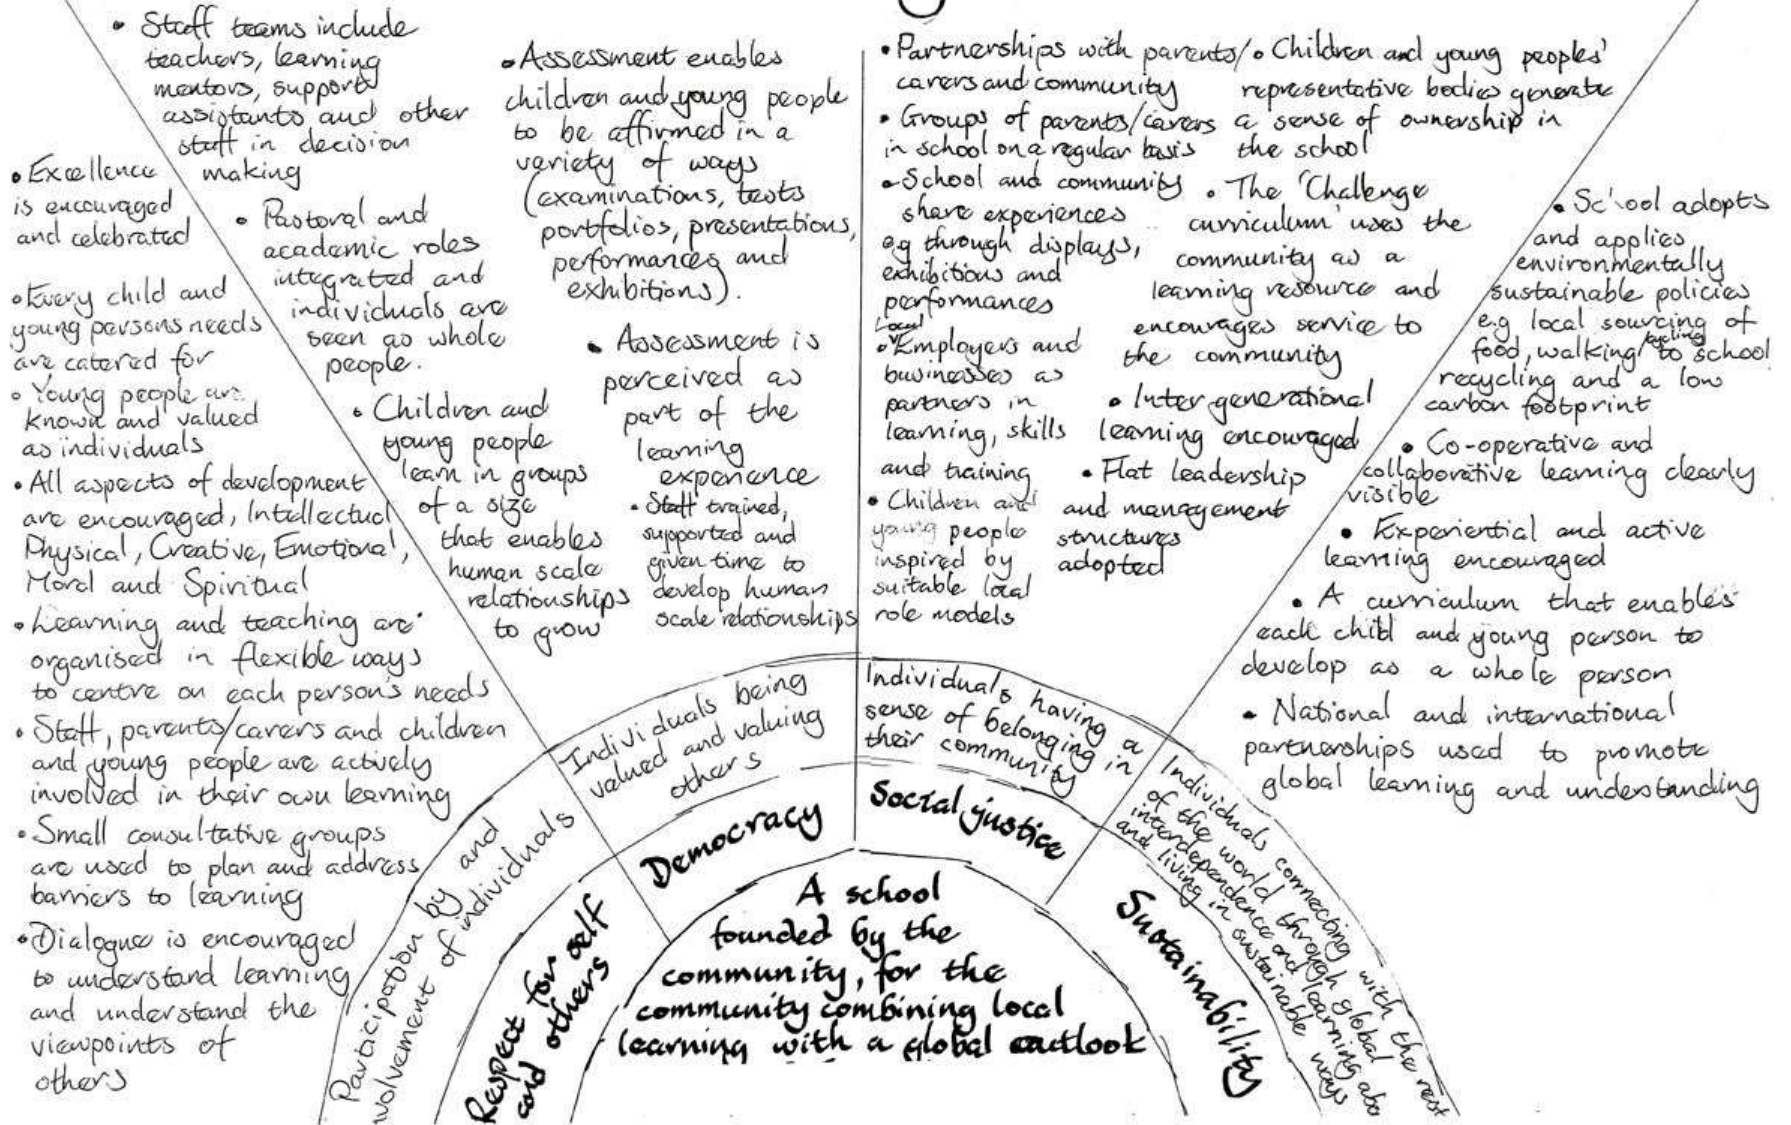 • Excellence
is encouraged
and celebrated
• Every child and
young persons needs
are catered for
• Young people are
known and valued
as individuals
• All aspects of development
are encouraged, Intellectual
Physical, Creative, Emotional,
Moral and Spiritual
• Learning and teaching are
organised in flexible ways
to centre on each person's needs
• Staff, parents/carers and children
and young people are actively
involved in their own learning
• Small consultative groups
are used to plan and address
barriers to learning
• Dialogue is encouraged
to understand learning
and understand the
viewpoints of
others
• Staff teams include
teachers, learning
mentors, support
assistants and other
staff in decision
making
• Pastoral and
academic roles
integrated and
individuals are
seen as whole
people.
• Children and
young people
learn in groups
of a size
that enables
human scale
relationships
to grow
• Assessment enables
children and young people
to be affirmed in a
variety of ways
(examinations, tests
portfolios, presentations,
performances and
exhibitions).
• Assessment is
perceived as
part of the
learning
experience
• Staff trained,
supported and
given time to
develop human
scale relationships
• Partnerships with parents/
carers and community
• Groups of parents/carers
in school on a regular basis
• School and community
share experiences
e.g through displays,
exhibitions and
performances
• Local Employers and
businesses as
partners in
learning, skills
and training
• Children and
young people
inspired by
suitable local
role models
• Children and young peoples'
representative bodies generate
a sense of ownership in
the school
• The 'Challenge
curriculum' uses the
community as a
learning resource and
encourages service to
the community
• Inter generational
learning encouraged
• Flat leadership
and management
structures
adopted
• School adopts
and applies
environmentally
sustainable policies
e.g local sourcing of
food, walking/cycling to school
recycling and a low
carbon footprint
• Co-operative and
collaborative learning clearly
visible
• Experiential and active
learning encouraged
• A curriculum that enables
each child and young person to
develop as a whole person
• National and international
partnerships used to promote
global learning and understanding
Participation by and
involvement of individuals
Individuals being
valued and valuing
others
Individuals having a
sense of belonging in
their community
Individuals connecting with the rest
of the world through global
interdependence and learning abo
and living in sustainable ways
Respect for self
and others
Democracy
Social justice
Sustainability
A school
founded by the
community, for the
community combining local
learning with a global outlook